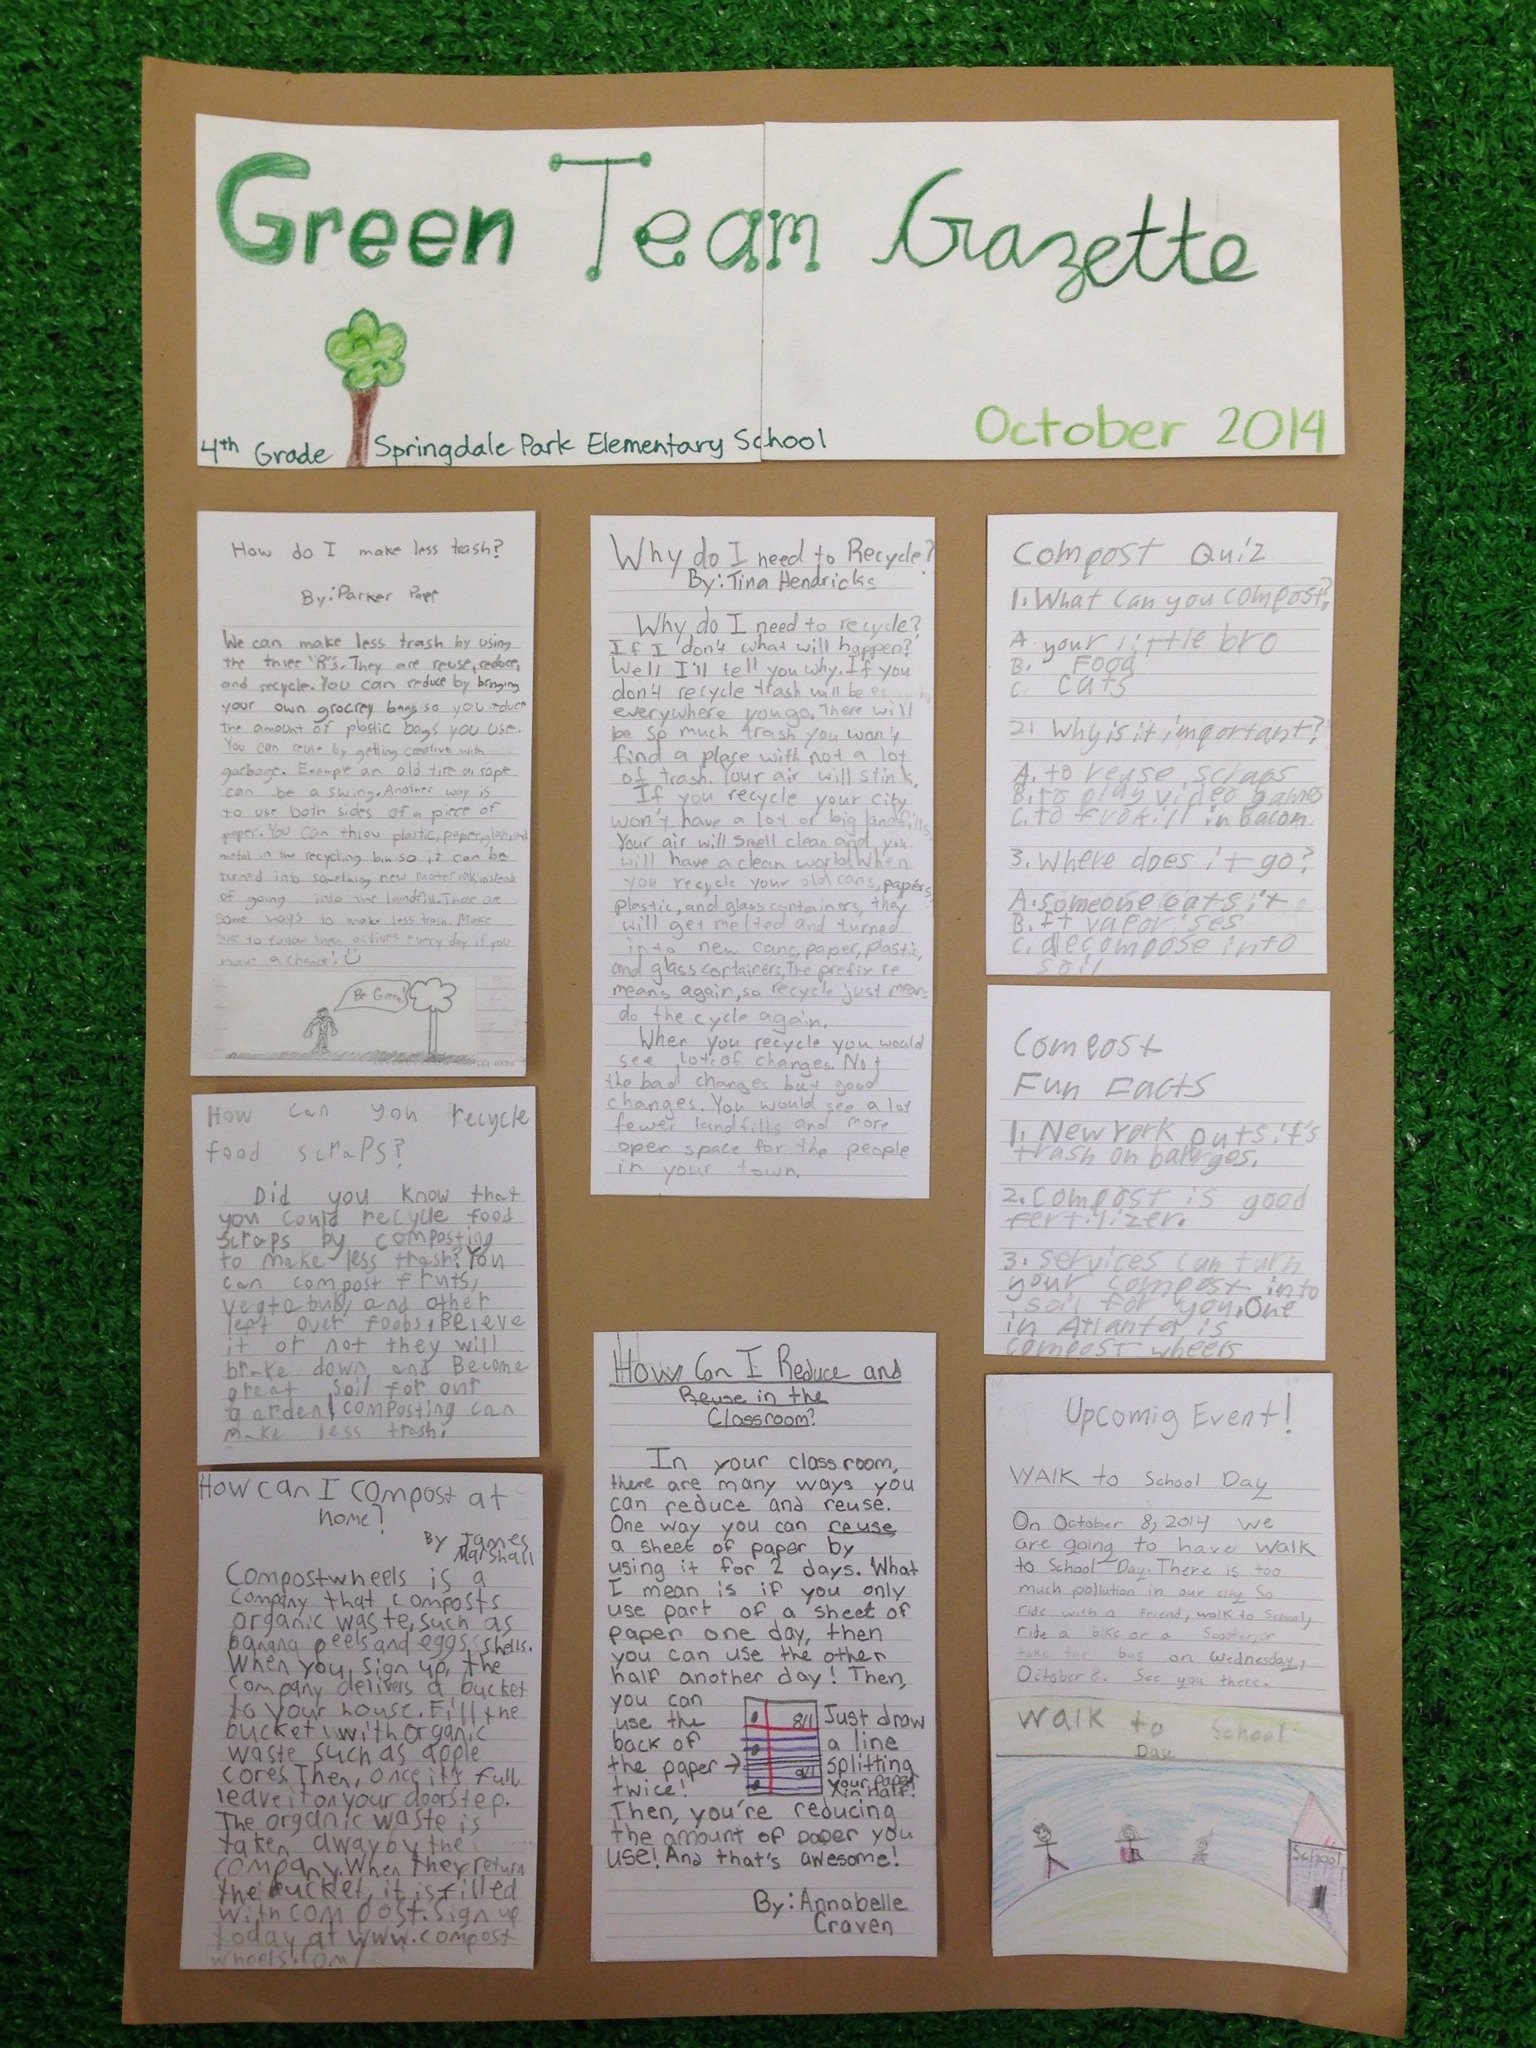 Green Team Gazette
4th Grade Springdale Park Elementary School
October 2014
How do I make less trash?
By: Parker Papp
We can make less trash by using
the three "R"s. They are reuse, reduce,
and recycle. You can reduce by bringing
your own grocrey bags so you reduce
the amount of plastic bags you use.
You can reuse by getting creative with
garbage. Example an old tire a rope
can be a swing. Another way is
to use both sides of a piece of
paper. You can throw plastic, paper, glass, and
metal in the recycling bin so it can be
turned into something new material instead
of going into the landfill. Those are
some ways to make less trash. Make
sure to follow these actives every day if you
have a chance!
Be Green!
How can you recycle
food scraps?
Did you know that
you could recycle food
scraps by composting
to make less trash? You
can compost fruts,
vegtabuls, and other
left over foods. Beleve
it or not they will
brake down and Become
great soil for our
garden! composting can
make less trash.
How can I compost at
home?
By James
Marshall
Compostwheels is a
company that composts
organic waste, such as
banana peels and eggs shells.
When you sign up, the
company delivers a bucket
to your house. Fill the
bucket with organic
waste such as apple
cores. Then, once it's full
leave it on your doorstep.
The organic waste is
taken away by the
company. When they return
the bucket, it is filled
with compost. Sign up
today at www.compost
wheels.com/
Why do I need to Recycle?
By: Tina Hendricks
Why do I need to recycle?
If I don't what will happen?
Well I'll tell you why. If you
don't recycle trash will be
everywhere you go. There will
be so much trash you won't
find a place with not a lot
of trash. Your air will stink.
If you recycle your city
won't have a lot of big landfills.
Your air will smell clean and you
will have a clean world. When
you recycle your old cans, papers,
plastic, and glass containers, they
will get melted and turned
into new cans, paper, plastic,
and glass containers. The prefix re
means again, so recycle just means
do the cycle again.
When you recycle you would
see lots of changes. Not
the bad changes but good
changes. You would see a lot
fewer landfills and more
open space for the people
in your town.
How Can I Reduce and
Reuse in the
Classroom?
In your classroom,
there are many ways you
can reduce and reuse.
One way you can reuse
a sheet of paper by
using it for 2 days. What
I mean is if you only
use part of a sheet of
paper one day, then
you can use the other
half another day! Then,
you can
use the
back of
the paper →
twice!
8/1
9/1
Just draw
a line
splitting
your paper
in half!
Then, you're reducing
the amount of paper you
use! And that's awesome!
By: Annabelle
Craven
Compost Quiz
1. What can you compost?
A. your little bro
B. Food
C. cats
2. Why is it important?
A. to reuse scraps
B. to play video games
C. to frokill in Bacon
3. Where does it go?
A. someone eats it
B. It vaporises
C. decompose into
soil
Compost
Fun Facts
1. New York puts it's
trash on barges.
2. compost is good
fertilizer.
3. services can turn
your compost into
soil for you. One
in Atlanta is
compost wheels
Upcomig Event!
WAlK to School Day
On October 8, 2014 we
are going to have walk
to School Day. There is too
much pollution in our city so
ride with a friend, walk to School,
ride a bike or a Scooter, or
take the bus on Wednesday,
October 8. See you there.
Walk to School
Day
School